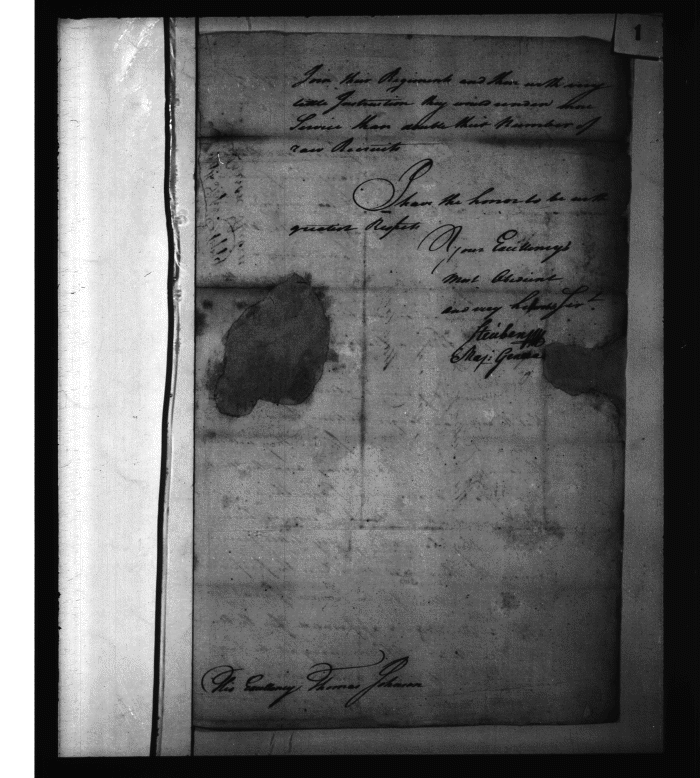 1
Join their Regiments and then with very
little Instruction they would render more
Service than double their Number of
raw Recruits
I have the honor to be with
greatest Respect
Your Excellency's
Most Obedient
and very Serv.t
Steuben
Maj: General
His Excellency Thomas Johnson